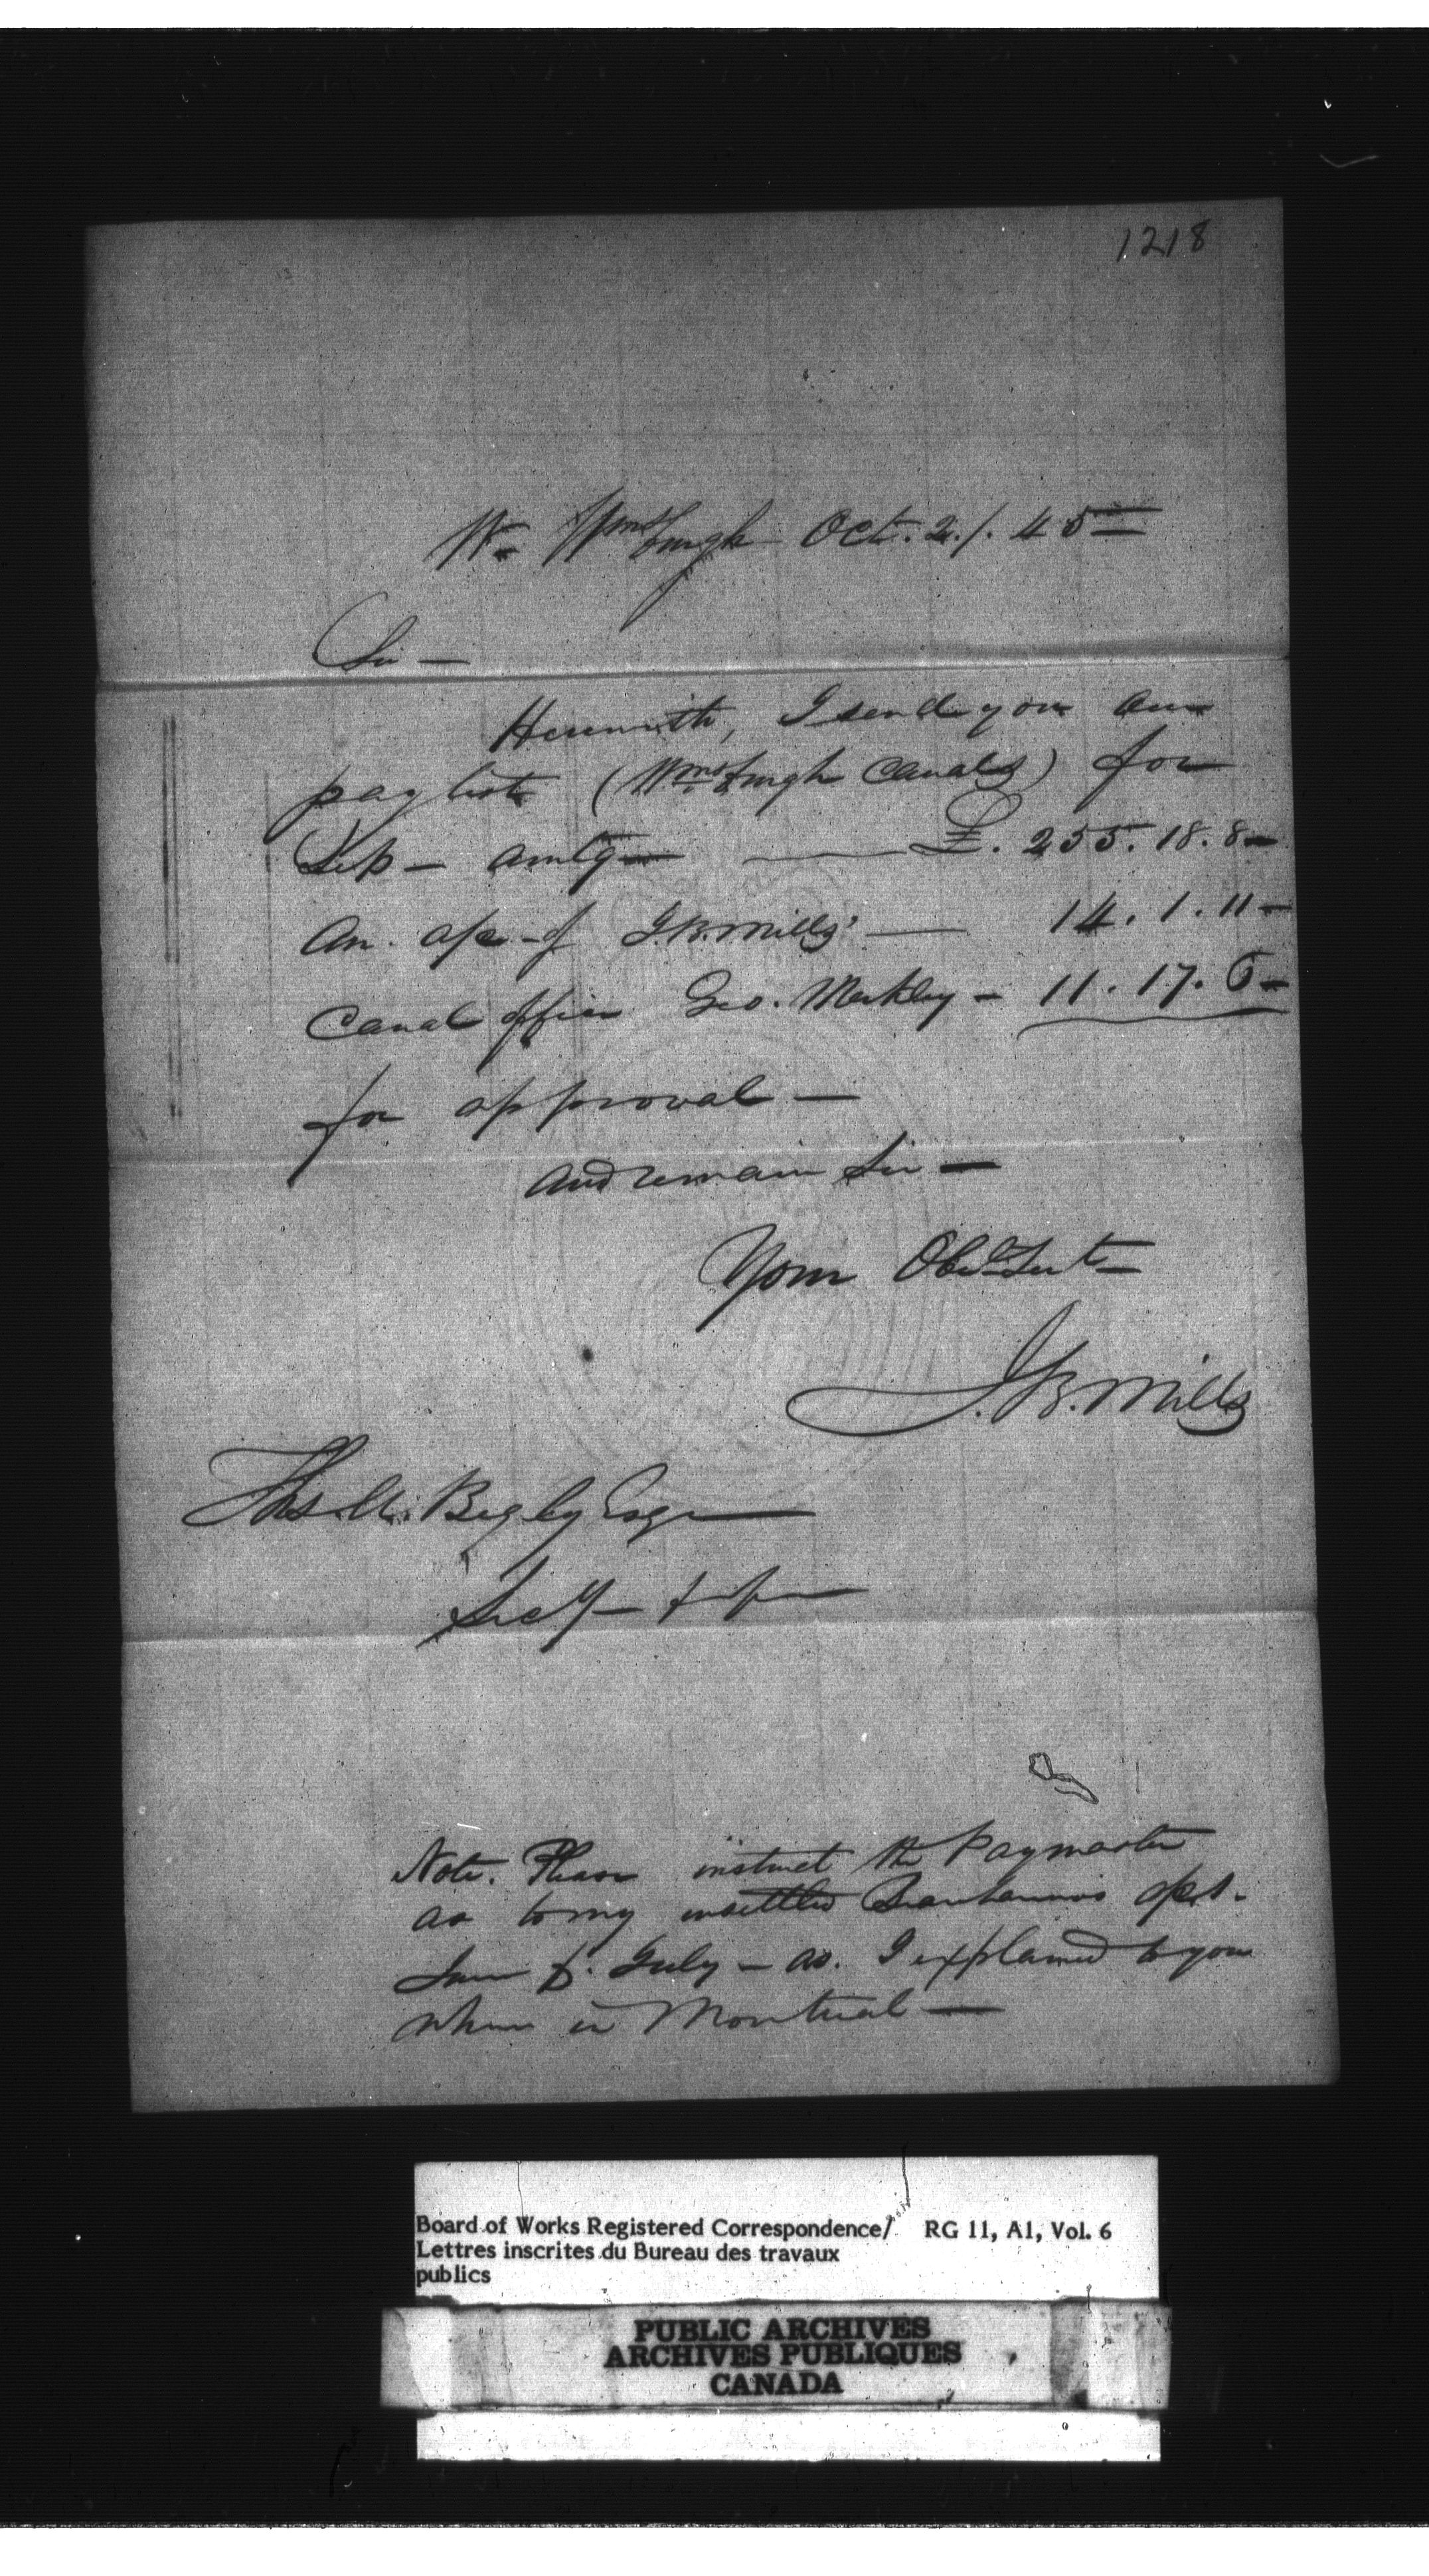 1218
Wmsburgh Oct. 2/. 45
Sir —
Herewith, I send you our
pay lists (Wmsburgh Canals) for
Sep — amtg — £. 255. 18. 8 —
An. a/c of J.B. Mills' — 14. 1. 11 —
Canal Office Geo. Merkley — 11. 17. 6 —
for approval —
and remain Sir —
Your Obt Sert —
J. B. Mills
Thos. A. Begly Esqr
Secy
Note. Please instruct the Paymaster
as to my unsettled Beauharnois a/cs.
June & July — as. I explained to you
when in Montreal —
Board of Works Registered Correspondence/ RG 11, A1, Vol. 6
Lettres inscrites du Bureau des travaux
publics
PUBLIC ARCHIVES
ARCHIVES PUBLIQUES
CANADA